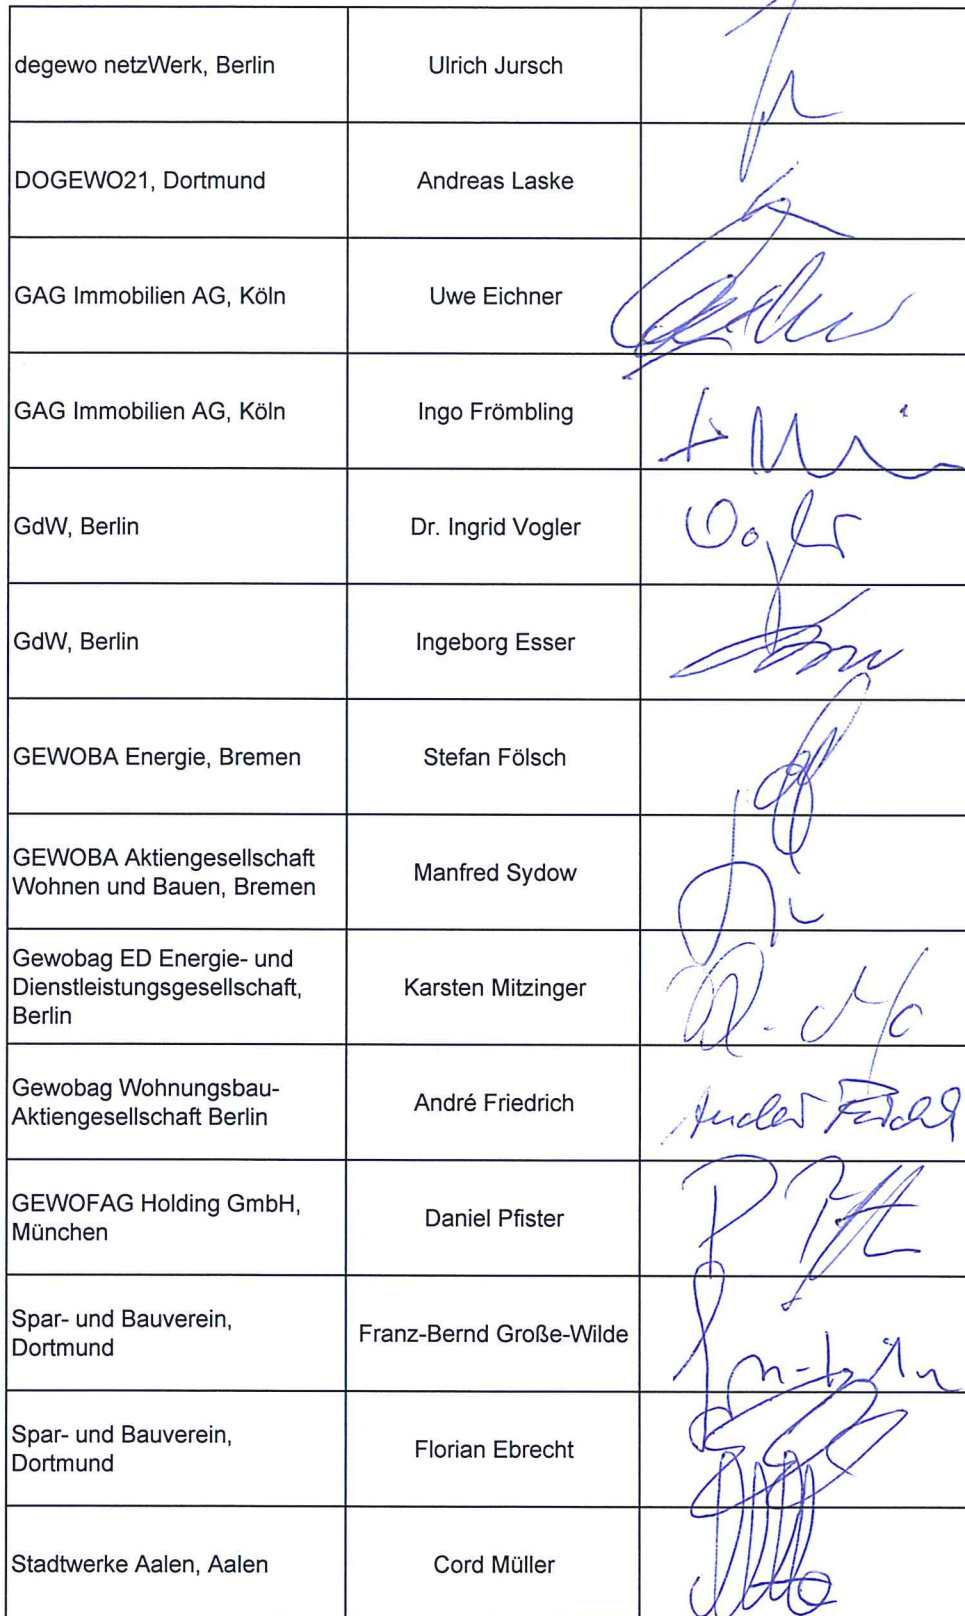 degewo netzWerk, Berlin Ulrich Jursch
DOGEWO21, Dortmund Andreas Laske
GAG Immobilien AG, Köln Uwe Eichner
GAG Immobilien AG, Köln Ingo Frömbling
GdW, Berlin Dr. Ingrid Vogler
Vogler
GdW, Berlin Ingeborg Esser
GEWOBA Energie, Bremen Stefan Fölsch
GEWOBA Aktiengesellschaft
Wohnen und Bauen, Bremen
Manfred Sydow
Gewobag ED Energie- und
Dienstleistungsgesellschaft,
Berlin
Karsten Mitzinger
Gewobag Wohnungsbau-
Aktiengesellschaft Berlin
André Friedrich
GEWOFAG Holding GmbH,
München
Daniel Pfister
Spar- und Bauverein,
Dortmund
Franz-Bernd Große-Wilde
Spar- und Bauverein,
Dortmund
Florian Ebrecht
Stadtwerke Aalen, Aalen Cord Müller